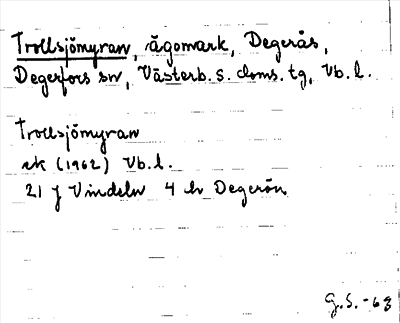 Trollsjömyran, ägomark, Degerås,
Degerfors sn, Västerb. s. doms. tg, Vb. l.
Trollsjömyran
ek (1962) Vb. l.
21 J Vindeln 4 h Degerön
G.S. -68